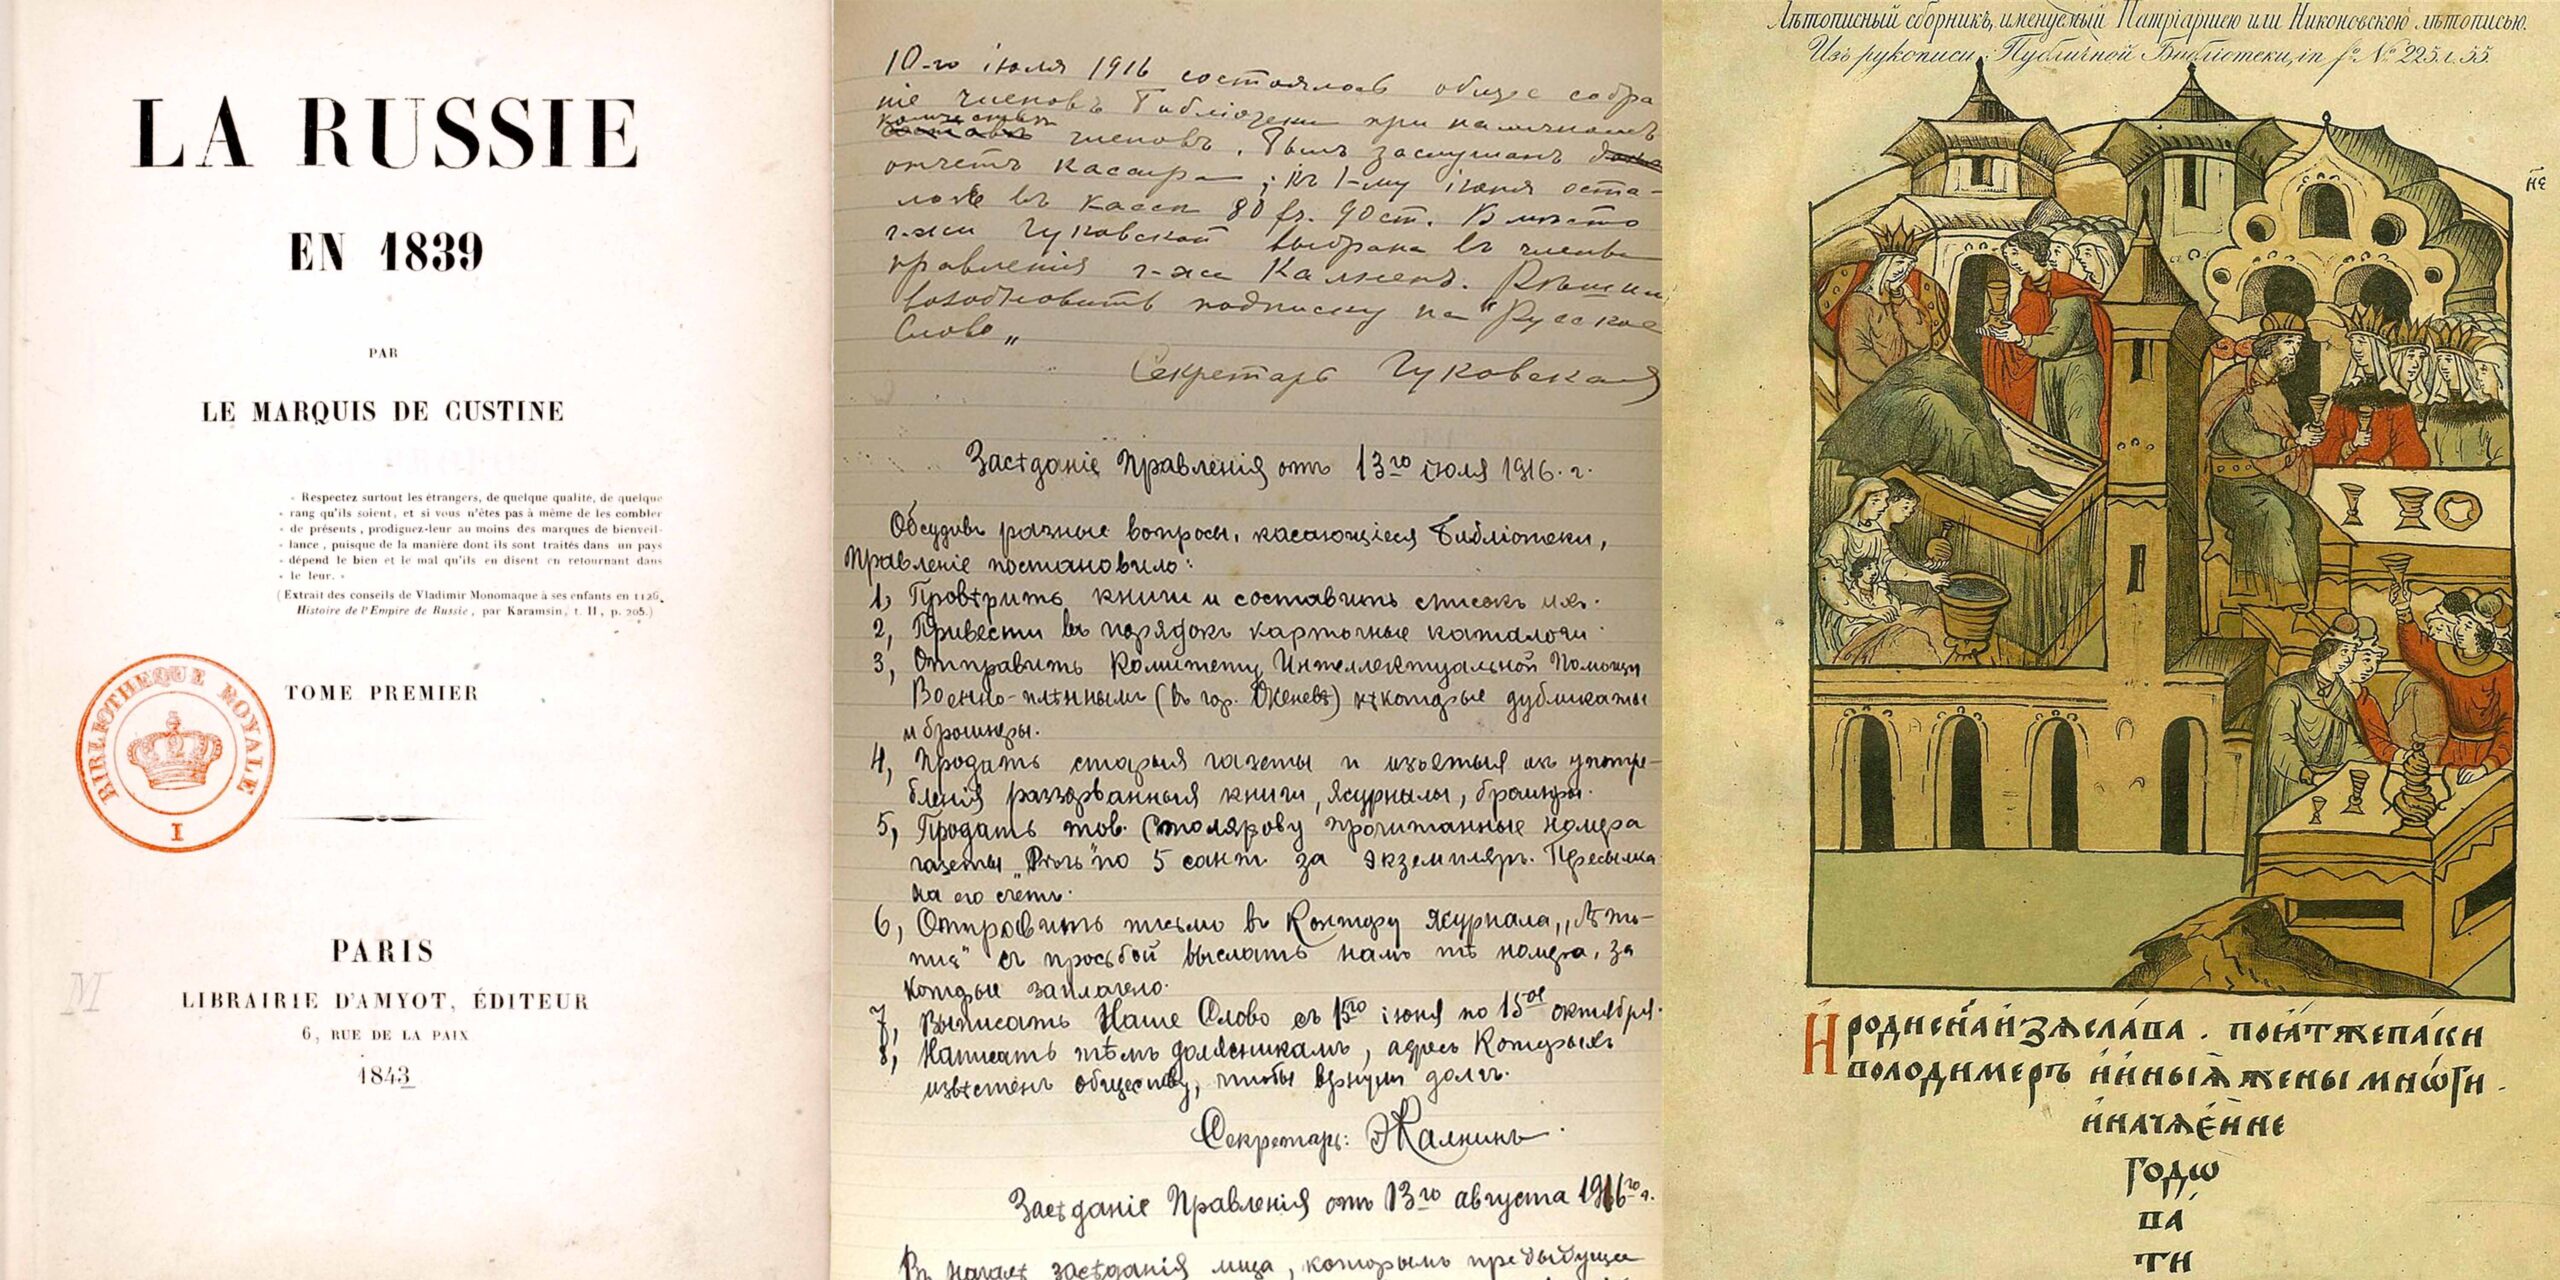 LA RUSSIE
EN 1839
PAR
LE MARQUIS DE CUSTINE
« Respectez surtout les étrangers, de quelque qualité, de quelque
« rang qu'ils soient, et si vous n'êtes pas à même de les combler
« de présents, prodiguez-leur au moins des marques de bienveil-
« lance, puisque de la manière dont ils sont traités dans un pays
« dépend le bien et le mal qu'ils en disent en retournant dans
« le leur. »
(Extrait des conseils de Vladimir Monomaque à ses enfants en 1126.
Histoire de l'Empire de Russie, par Karamsin, t. II, p. 205.)
BIBLIOTHEQUE ROYALE
I
TOME PREMIER
PARIS
LIBRAIRIE D'AMYOT, ÉDITEUR
6, RUE DE LA PAIX
1843
M
10-го іюля 1916 состоялось общее собра
ніе членовъ Библіотеки при наличномъ
количествѣ членовъ. Былъ заслушанъ
отчетъ кассира; къ 1-му іюня оста-
лось въ кассѣ 80 fr. 90 ст. Вмѣсто
г-жи Чуковской выбрана въ члены
правленія г-жа Калнень. Рѣшили
возобновить подписку на "Русское
Слово"
Секретарь Чуковская
Засѣданіе Правленія отъ 13го іюля 1916 г.
Обсудивъ разные вопросы, касающіеся Библіотеки,
Правленіе постановило:
1, Провѣрить книги и составить списокъ ихъ.
2, Привести въ порядокъ карточные каталоги.
3, Отправить Комитету Интеллектуальной Помощи
Военно-плѣннымъ (въ гор. Женевѣ) нѣкоторые дубликаты
и брошюры.
4, Продать старыя газеты и изъятыя изъ употре-
бленія разорванныя книги, журналы, брошюры.
5, Продать тов. Столярову прочитанные номера
газеты „Рѣчь" по 5 сант. за экземпляръ. Пересылка
на его счетъ.
6, Отправить письмо въ Контору журнала „Лѣто-
пись" съ просьбой выслать намъ тѣ номера, за
которые заплачено.
7, Выписать Наше Слово съ 15го іюня по 15ое октября.
8, Написать тѣмъ должникамъ, адресъ которыхъ
извѣстенъ обществу, чтобы вернули долгъ.
Секретарь: Калнинь.
Засѣданіе Правленія отъ 13го августа 1916го г.
Въ началѣ засѣданія лица, которымъ предыдуще
Лѣтописный сборникъ, именуемый Патріаршею или Никоновскою лѣтописью.
Изъ рукописи Публичной Библіотеки, in fo. No. 225. л. 55.
Н
родисенаи зяслава . поіатжепаки
володимеръ иины жены многи .
иначяеине
годѡ
па
ти